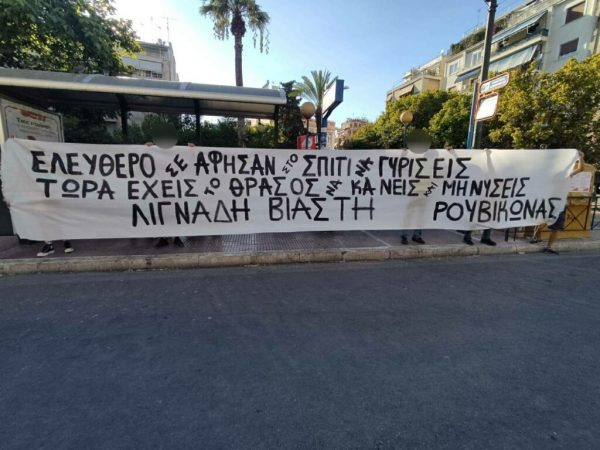 ΕΛΕΥΘΕΡΟ ΣΕ ΑΦΗΣΑΝ ΣΤΟ ΣΠΙΤΙ ΝΑ ΓΥΡΙΣΕΙΣ
ΤΩΡΑ ΕΧΕΙΣ ΤΟ ΘΡΑΣΟΣ ΝΑ ΚΑΝΕΙΣ ΚΑΙ ΜΗΝΥΣΕΙΣ
ΛΙΓΝΑΔΗ ΒΙΑΣΤΗ ΡΟΥΒΙΚΩΝΑΣ